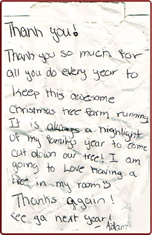 Thank you!
Thank you so much for
all you do every year to
keep this awesome
Christmas tree farm running
It is always a highlight
of my family's year to come
cut down our tree! I am
going to love having a
tree in my room
Thanks again!
See ya next year!
Adam